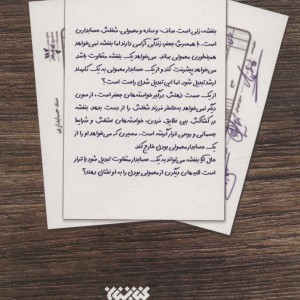 بنفشه، زنی است صاف و ساده و معمولی. شغلش حسابداری
است. با همسرش جعفر زندگی آرامی دارند اما بنفشه نمی‌خواهد
همینطوری معمولی بماند. می‌خواهد یک بنفشه متفاوت باشد.
می‌خواهد پیشرفت کند و از یک حسابدار معمولی به یک کارمند
ارشد تبدیل شود. اما این تبدیل شدن راحت نیست.
از یک سمت ذهنش درگیر خواسته‌های جعفر است، از سوی
دیگر نمی‌خواهد به خاطر فرزند شغلش را از دست بدهد. بنفشه
در کشاکش بین علایق فردی، خواسته‌های شغلش و شرایط
جسمانی و روحی قرار گرفته است. مسیری که می‌خواهد او را از
یک حسابدار معمولی بودن خارج کند.
حال آیا بنفشه می‌تواند به یک حسابدار متفاوت تبدیل شود یا قرار
است قله‌های دیگری از معمولی بودن را به او نشان دهند؟
سند حسابداری